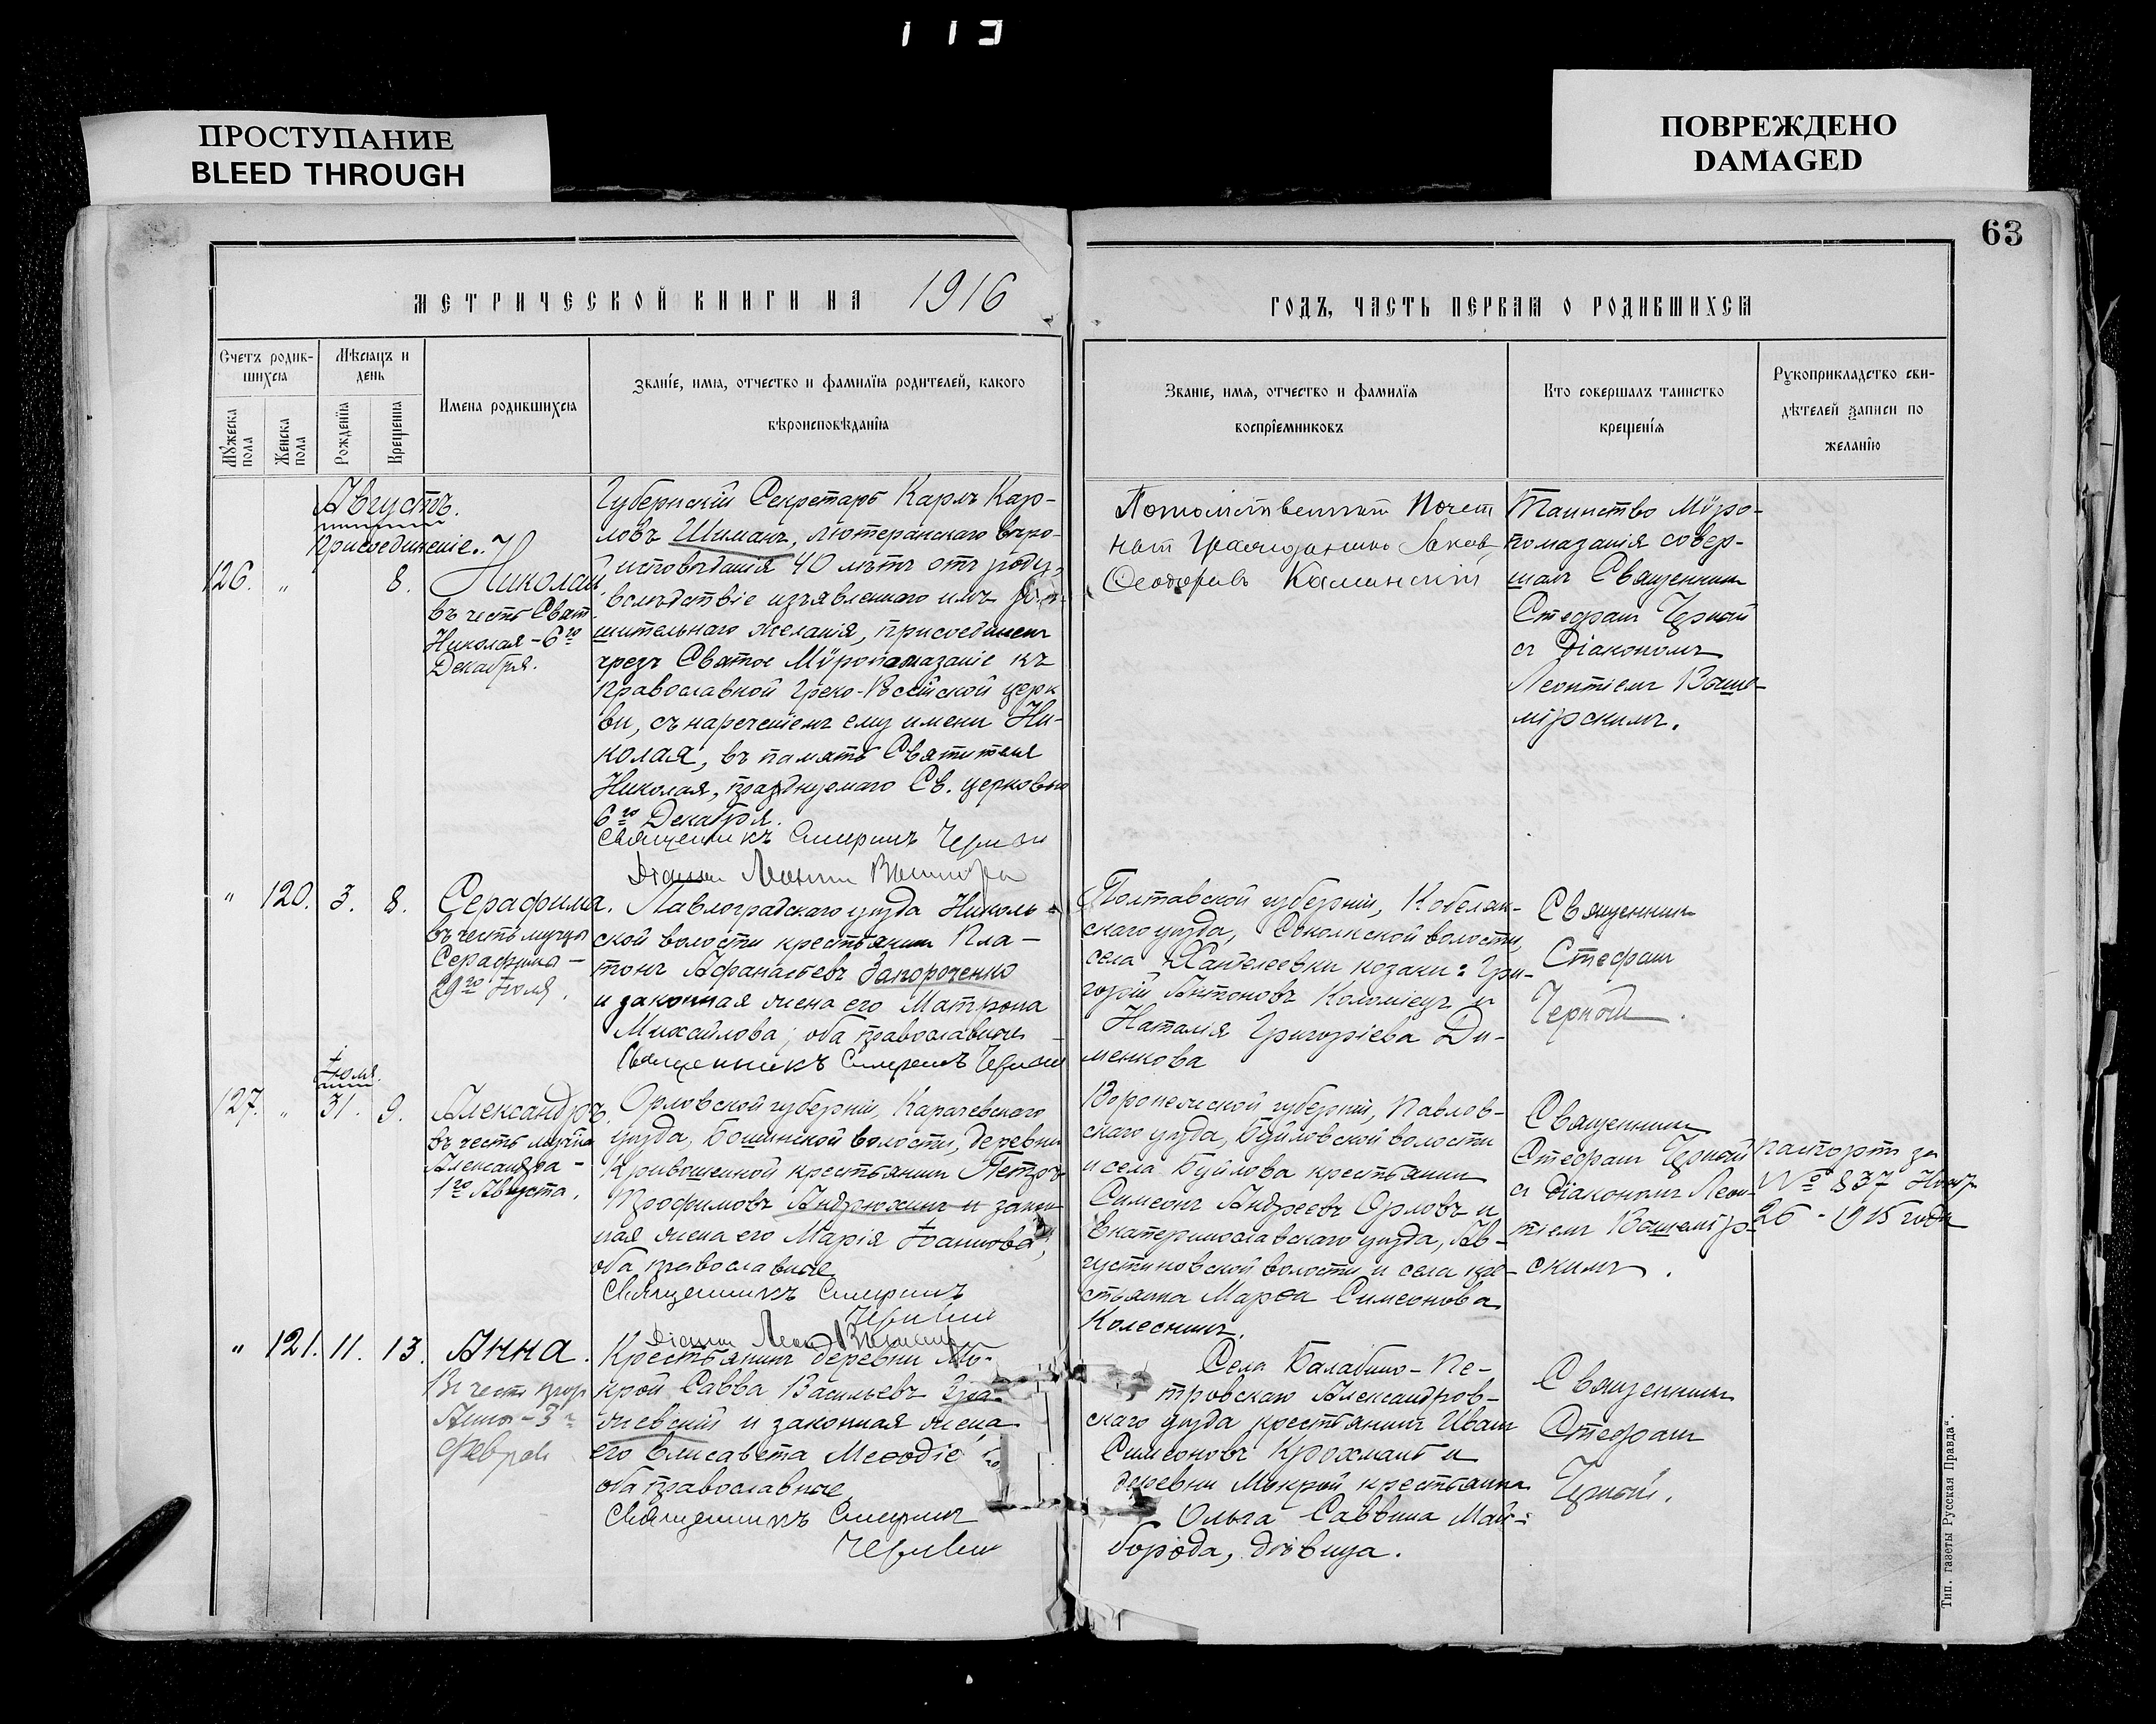 113
ПРОСТУПАНИЕ
BLEED THROUGH
ПОВРЕЖДЕНО
DAMAGED
63
МЕТРИЧЕСКОЙ КНИГИ НА 1916
ГОДЪ, ЧАСТЬ ПЕРВАЯ О РОДИВШИХСЯ
Счетъ родив-
шихся
Мѣсяцъ и
день
Мужеска
пола
Женска
пола
Рожденія
Крещенія
Имена родившихся
Званіе, имя, отчество и фамилія родителей, какого
вѣроисповѣданія
Званіе, имя, отчество и фамилія
воспріемниковъ
Кто совершалъ таинство
крещенія
Рукоприкладство сви-
дѣтелей записи по
желанію
Августъ.
присоединеніе.
126. „ 8. Николай
въ честь Свят.
Николая - 6го
Декабря.
Губернскій Секретарь Карлъ Кар-
ловъ Шиманъ, лютеранскаго вѣро-
исповѣданія 40 лѣтъ отъ роду,
вслѣдствіе изъявленнаго имъ рѣ-
шительнаго желанія, присоединенъ
чрезъ Святое Мѵропомазаніе къ
православной Греко-Россійской церк
ви, съ нареченіемъ ему имени Ни-
колая, въ память Святителя
Николая, празднуемаго Св. церковью
6го Декабря.
Священникъ Стефанъ Черный
Потомственный Почет
ный Гражданинъ Іаковъ
Ѳеодоровъ Каминскій
Таинство Мѵро-
помазанія совер-
шалъ Священникъ
Стефанъ Черный
съ Діакономъ
Леонтіемъ Выше-
мірскимъ.
„ 120. 3. 8. Серафима.
въ честь мучцы
Серафимы -
29го Іюля.
Павлоградскаго уѣзда Николь-
ской волости крестьянинъ Пла-
тонъ Афанасьевъ Запороченко
и законная жена его Матрона
Михайлова; оба православные
Священникъ Стефанъ Черный
Полтавской губерніи, Кобеляк-
скаго уѣзда, Соколкской волости,
села Ханделеевки козаки: Гри-
горій Антоновъ Коломіецъ и
Наталія Григоріева Ди-
менкова
Священникъ
Стефанъ
Черный.
Іюля.
127. „ 31. 9. Александръ.
въ честь мучка
Александра -
1го Августа.
Орловской губерніи, Карачевскаго
уѣзда, Бошинской волости, деревни
Кривошеиной крестьянинъ Петръ
Трофимовъ Андрюхинъ и закон
ная жена его Марія Іоаннова,
оба православные
Священникъ Стефанъ
Черный
Воронежской губерніи, Павлов-
скаго уѣзда, Буйловской волости
и села Буйлова крестьянинъ
Симеонъ Андреевъ Орловъ и
Екатеринославскаго уѣзда, Ав-
густиновской волости и села кре-
стьянка Марѳа Симеонова
Колесникъ.
Священникъ
Стефанъ Черный
съ Діакономъ Леон-
тіемъ Вышемір-
скимъ.
паспортъ за
№ 837 Нояб
26 - 1915 года
„ 121. 11. 13. Анна.
Въ честь прор
Анны - 3го
Февраля
Крестьянинъ деревни Мо-
крой Савва Васильевъ Зра-
жевскій и законная жена
его Елисавета Меѳодіе
оба православные
Священникъ Стефанъ
Черный
Села Балабино-Пе-
тровскаго Александров-
скаго уѣзда крестьянинъ Иванъ
Симеоновъ Крохмаль и
деревни Мокрой крестьянка
Ольга Саввина Май-
борода, дѣвица.
Священникъ
Стефанъ
Черный.
Тип. газеты „Русская Правда“.